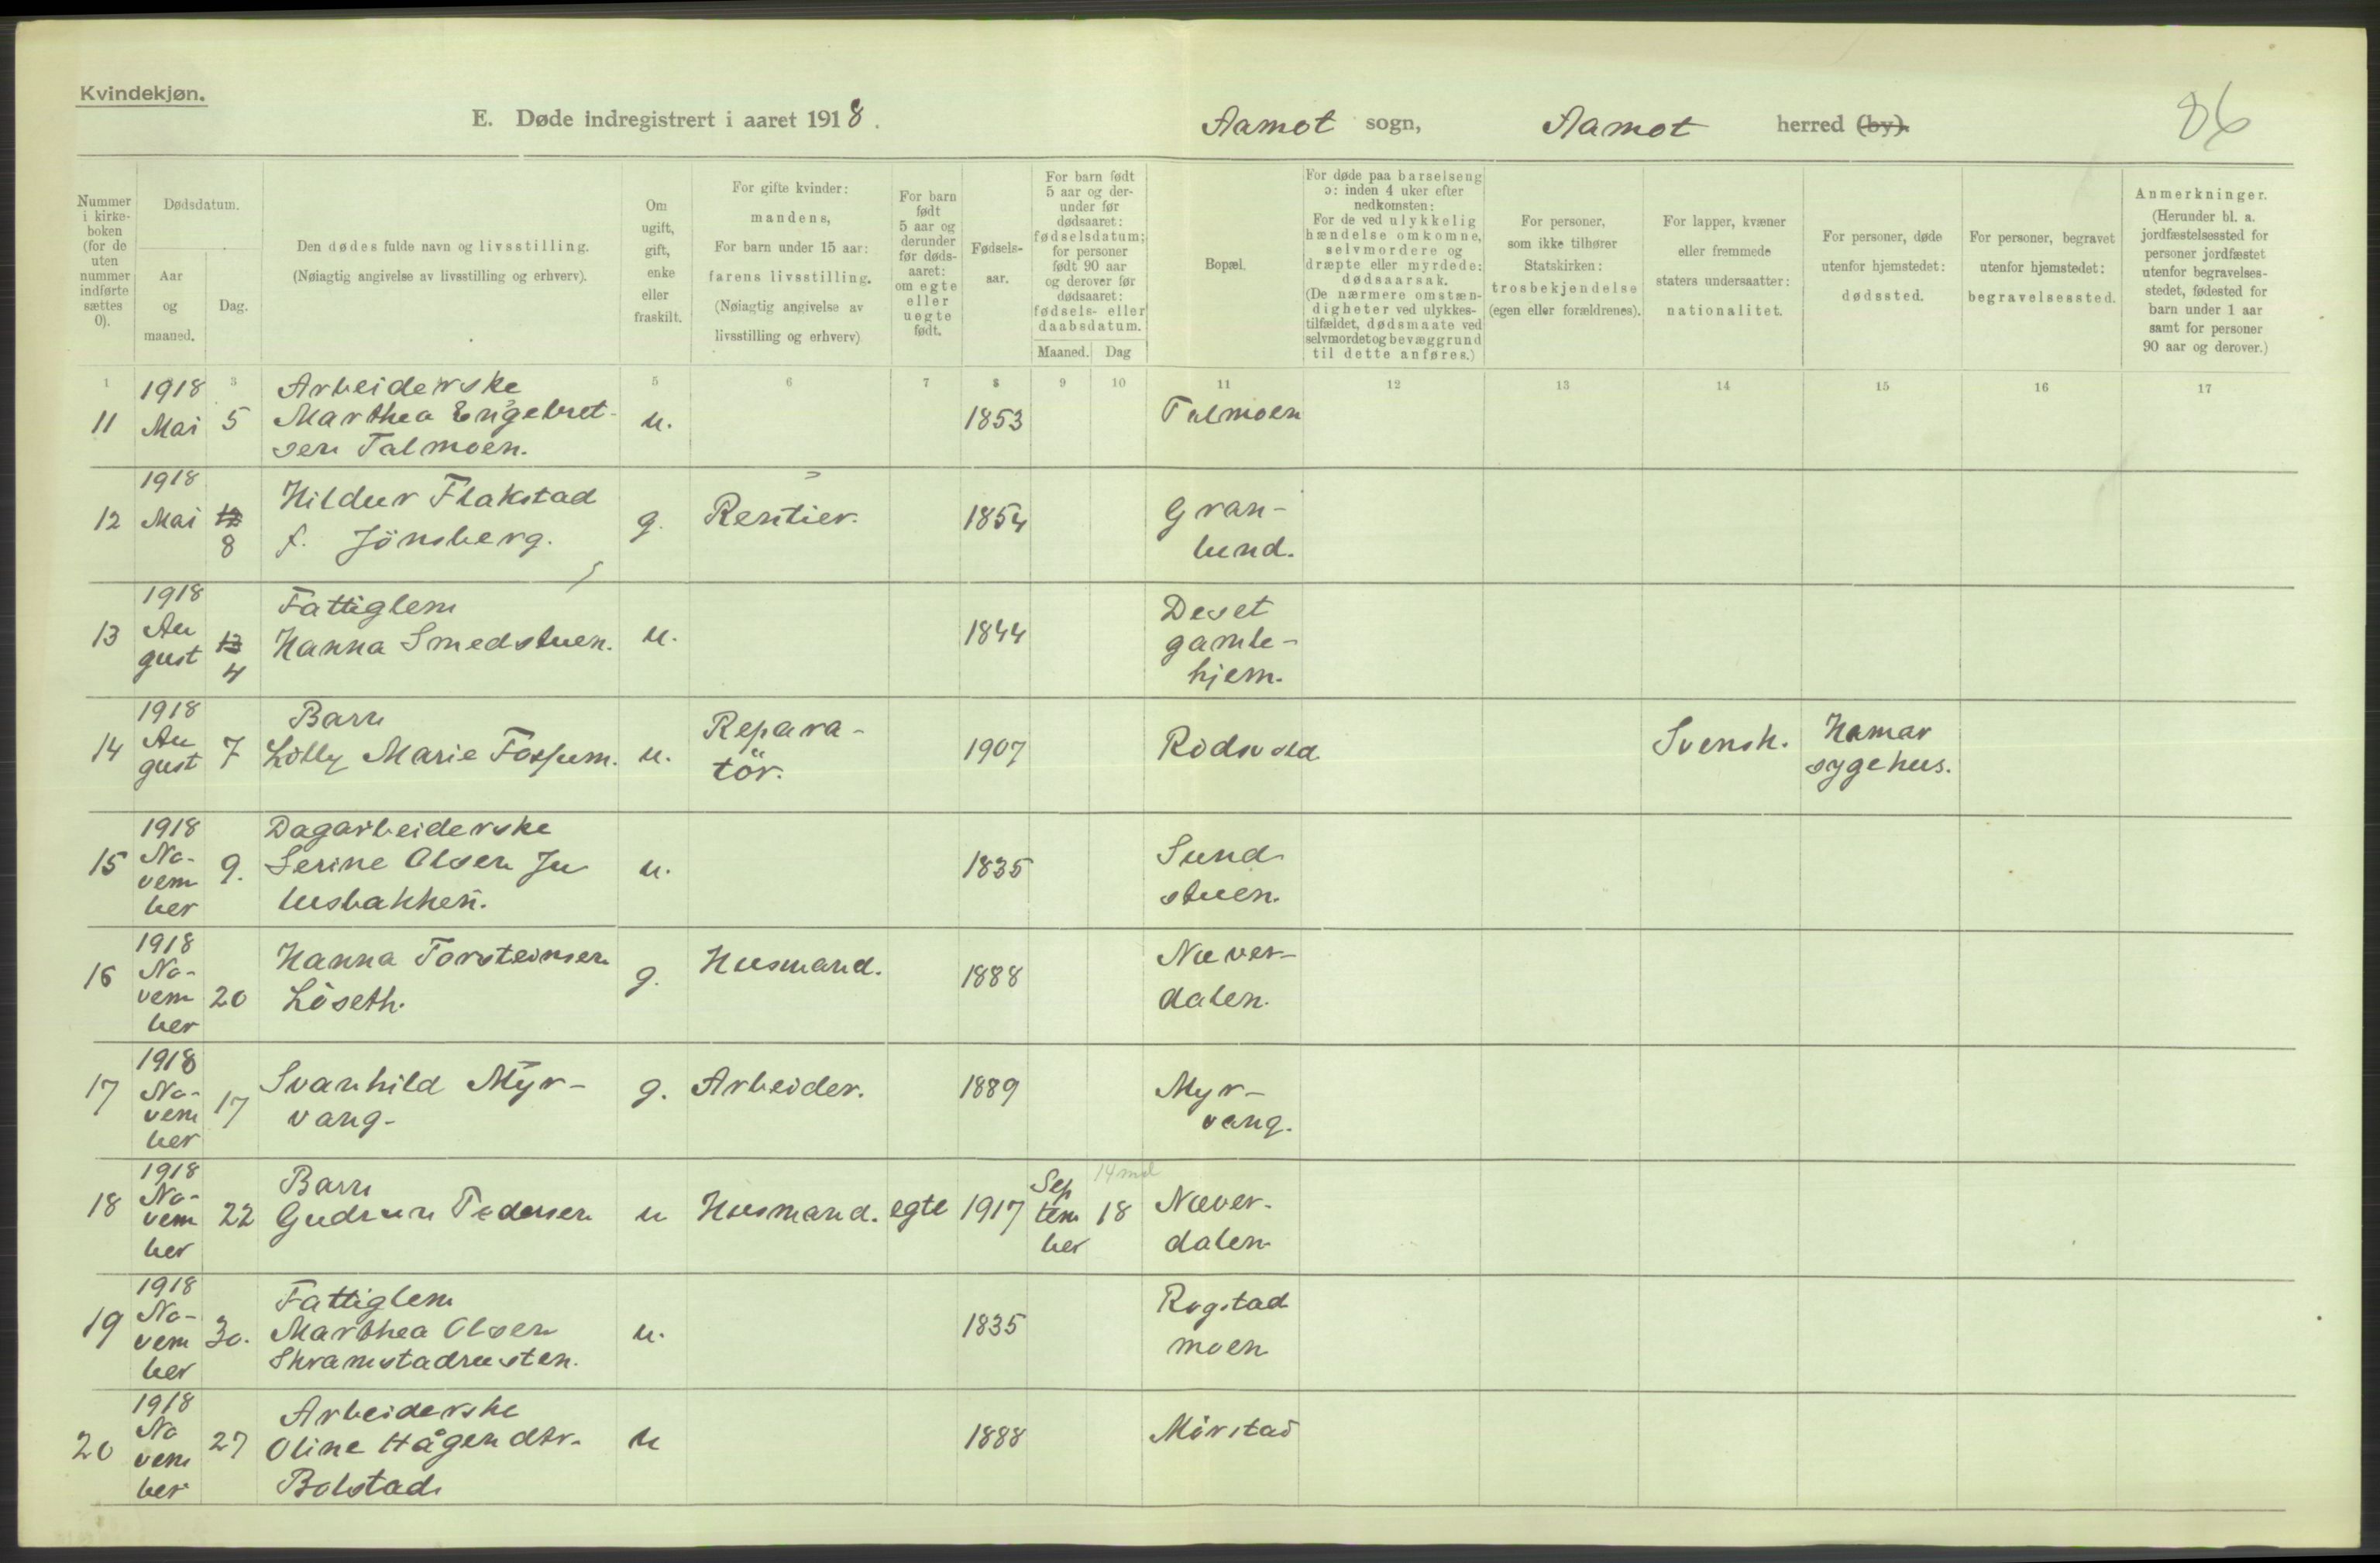 Kvindekjøn.
E. Døde indregistrert i aaret 1918.
Aamot sogn, Aamot herred (by).
86
Nummer i kirke-boken (for de uten nummer indførte sættes 0).
Dødsdatum.
Aar og maaned.
Dag.
Den dødes fulde navn og livsstilling.
(Nøiagtig angivelse av livsstilling og erhverv).
Om ugift, gift, enke eller fraskilt.
For gifte kvinder:
mandens,
For barn under 15 aar:
farens livsstilling.
(Nøiagtig angivelse av
livsstilling og erhverv)
For barn født 5 aar og derunder før døds-aaret: om egte eller uegte født.
Fødsels-aar.
For barn født 5 aar og der-under før dødsaaret: fødselsdatum; for personer født 90 aar og derover før dødsaaret: fødsels- eller daabsdatum.
Maaned. Dag
Bopæl.
For døde paa barselseng
ɔ: inden 4 uker efter
nedkomsten:
For de ved ulykkelig
hændelse omkomne,
selvmordere og
dræpte eller myrdede:
dødsaarsak.
(De nærmere omstæn-
digheter ved ulykkes-
tilfældet, dødsmaate ved
selvmordet og bevæggrund
til dette anføres.)
For personer,
som ikke tilhører
Statskirken:
trosbekjendelse
(egen eller forældrenes).
For lapper, kvæner
eller fremmede
staters undersaatter:
nationalitet.
For personer, døde
utenfor hjemstedet:
dødssted.
For personer, begravet
utenfor hjemstedet:
begravelsessted.
Anmerkninger.
(Herunder bl. a.
jordfæstelsessted for
personer jordfæstet
utenfor begravelses-
stedet, fødested for
barn under 1 aar
samt for personer
90 aar og derover.)
1 3 5 6 7 8 9 10 11 12 13 14 15 16 17
1918 Arbeiderske
11 Mai 5 Marthea Engebret- u. 1853 Talmoen
sen Talmoen.
1918
12 Mai 12 Hildur Flakstad g. Rentier. 1854 Gran-
8 f. Jönsberg. lund.
1918 Fattiglem Deset
13 Au 13 Hanna Smedstuen. u. 1844 gamle-
gust 4 hjem.
1918 Barn Repara- Hamar
14 Au 7 Lolly Marie Fossum. u. tör. 1907 Rödsvold Svensk. sygehus.
gust
1918 Dagarbeiderske
15 No- 9. Serine Olsen Ju u. 1835 Sund
vem lusbakken. stuen.
ber
1918 Hanna Torsteinsen
16 No- 20 Löseth. g. Husmand. 1888 Næver-
vem dalen.
ber
1918
17 No- 17 Svanhild Myr- g. Arbeider. 1889 Myr-
vem vang. vang.
ber
1918 Barn Sep 14 md
18 No- 22 Gudrun Pedersen u Husmand. egte 1917 tem 18 Næver-
vem ber dalen.
ber
1918 Fattiglem
19 No- 30. Marthea Olsen u. 1835 Rogstad
vem Skramstadrusten. moen
ber
1918 Arbeiderske
20 No 27 Oline Hågendtr. u 1888 Mörstad
vem Bolstad.
ber